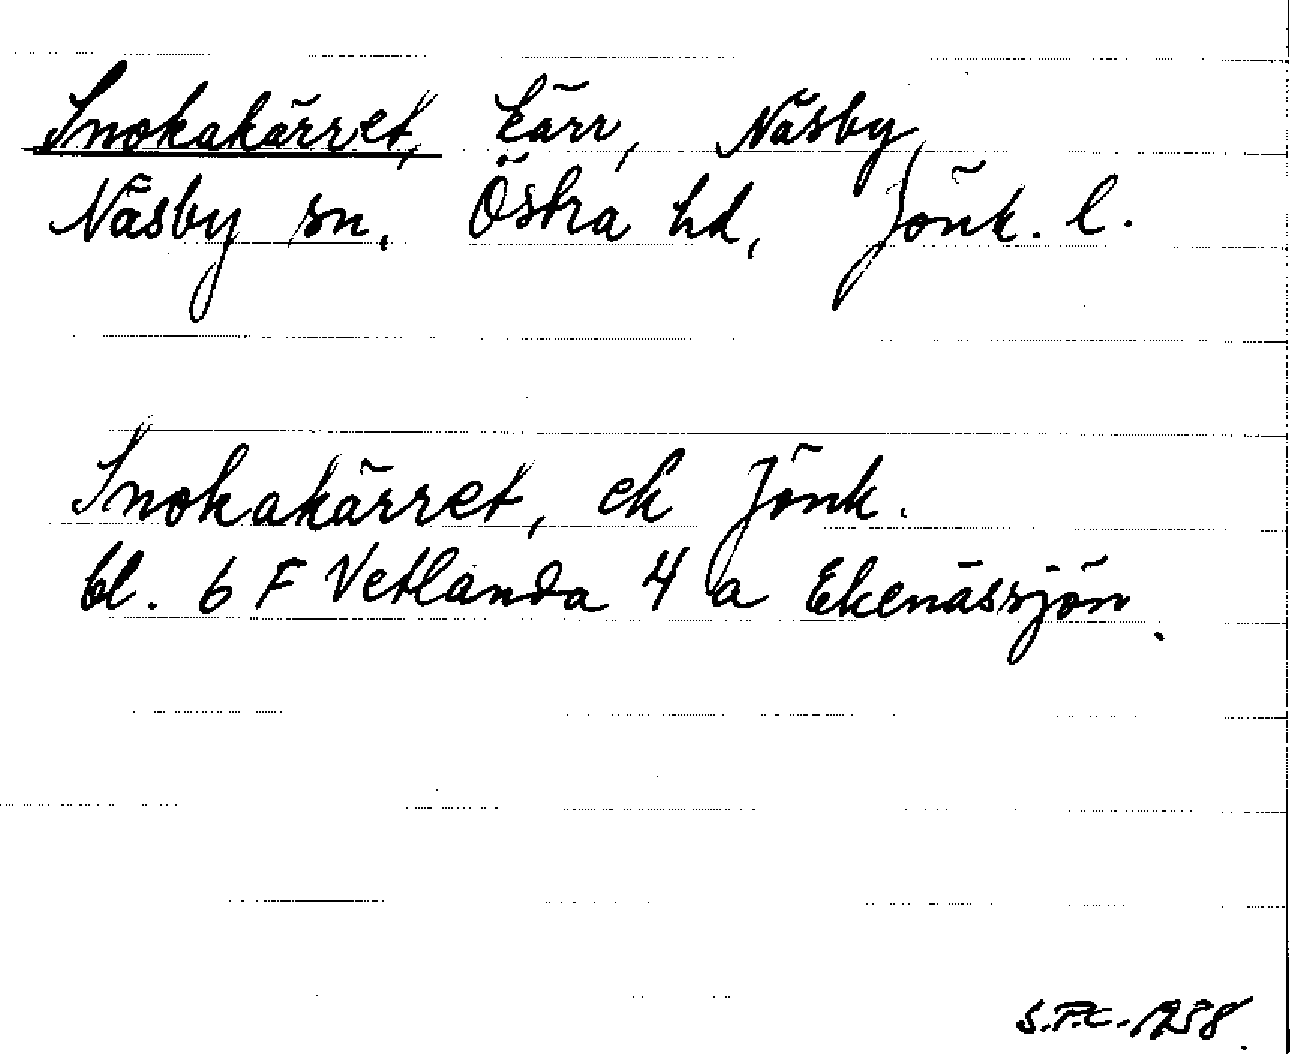 Snokakärret, kärr, Näsby,
Näsby sn, Östra hd, Jönk. l.
Snokakärret, ek Jönk.
bl. 6 F Vetlanda 4 a Ekenässjön.
S.F.C. 1958.